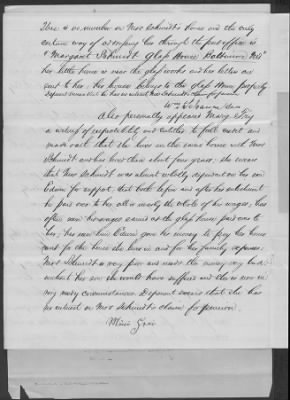 There is no number on Mrs Schmidt's house and the only
certain way of addressing her through the post office is
"Margaret Schmidt Glass House Baltimore Md"
her little house is near the glass works and her letters are
sent to her, her house belongs to the glass House property
Deponent swears that he has no interest Mrs Schmidt's claim for pension
Wm
Also personally appears Mary
a witness of respectability and entitled to full credit and
made oath that she lives in the same house with Mrs
Schmidt and has lived there about four years, she swears
that Mrs Schmidt was almost wholly dependent on her son
Edwin for support, that both before and after his enlistment
he paid over to her all or nearly the whole of his wages, has
often seen his wages earned at the glass house paid over to
her, has seen him Edwin give her money to pay the house
rent for the house she lives in and for her family expenses.
Mrs Schmidt is very poor and needs the money very bad
without her son she would have suffered and she is now in
very needy circumstances. Deponent swears that she has
no interest in Mrs Schmidt's claim for pension.